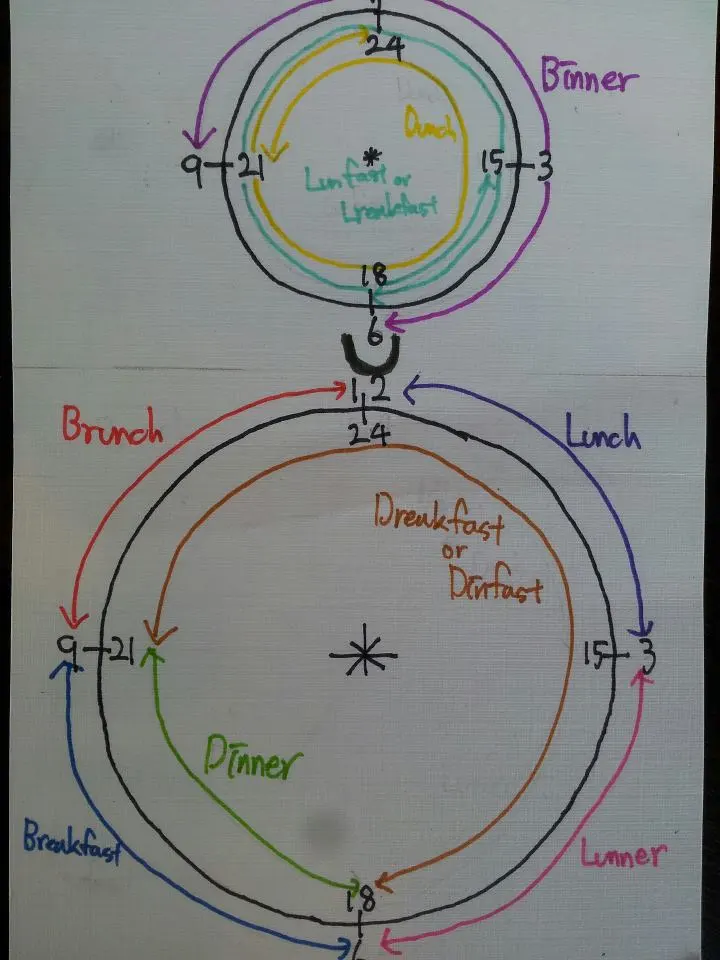 24
Binner
Dunch
9 21 15 3
Lunfast or
Lreakfast
18
6
12
Brunch Lunch
24
Dreakfast
or
Dinfast
9 21 15 3
Dinner
Breakfast Lunner
18